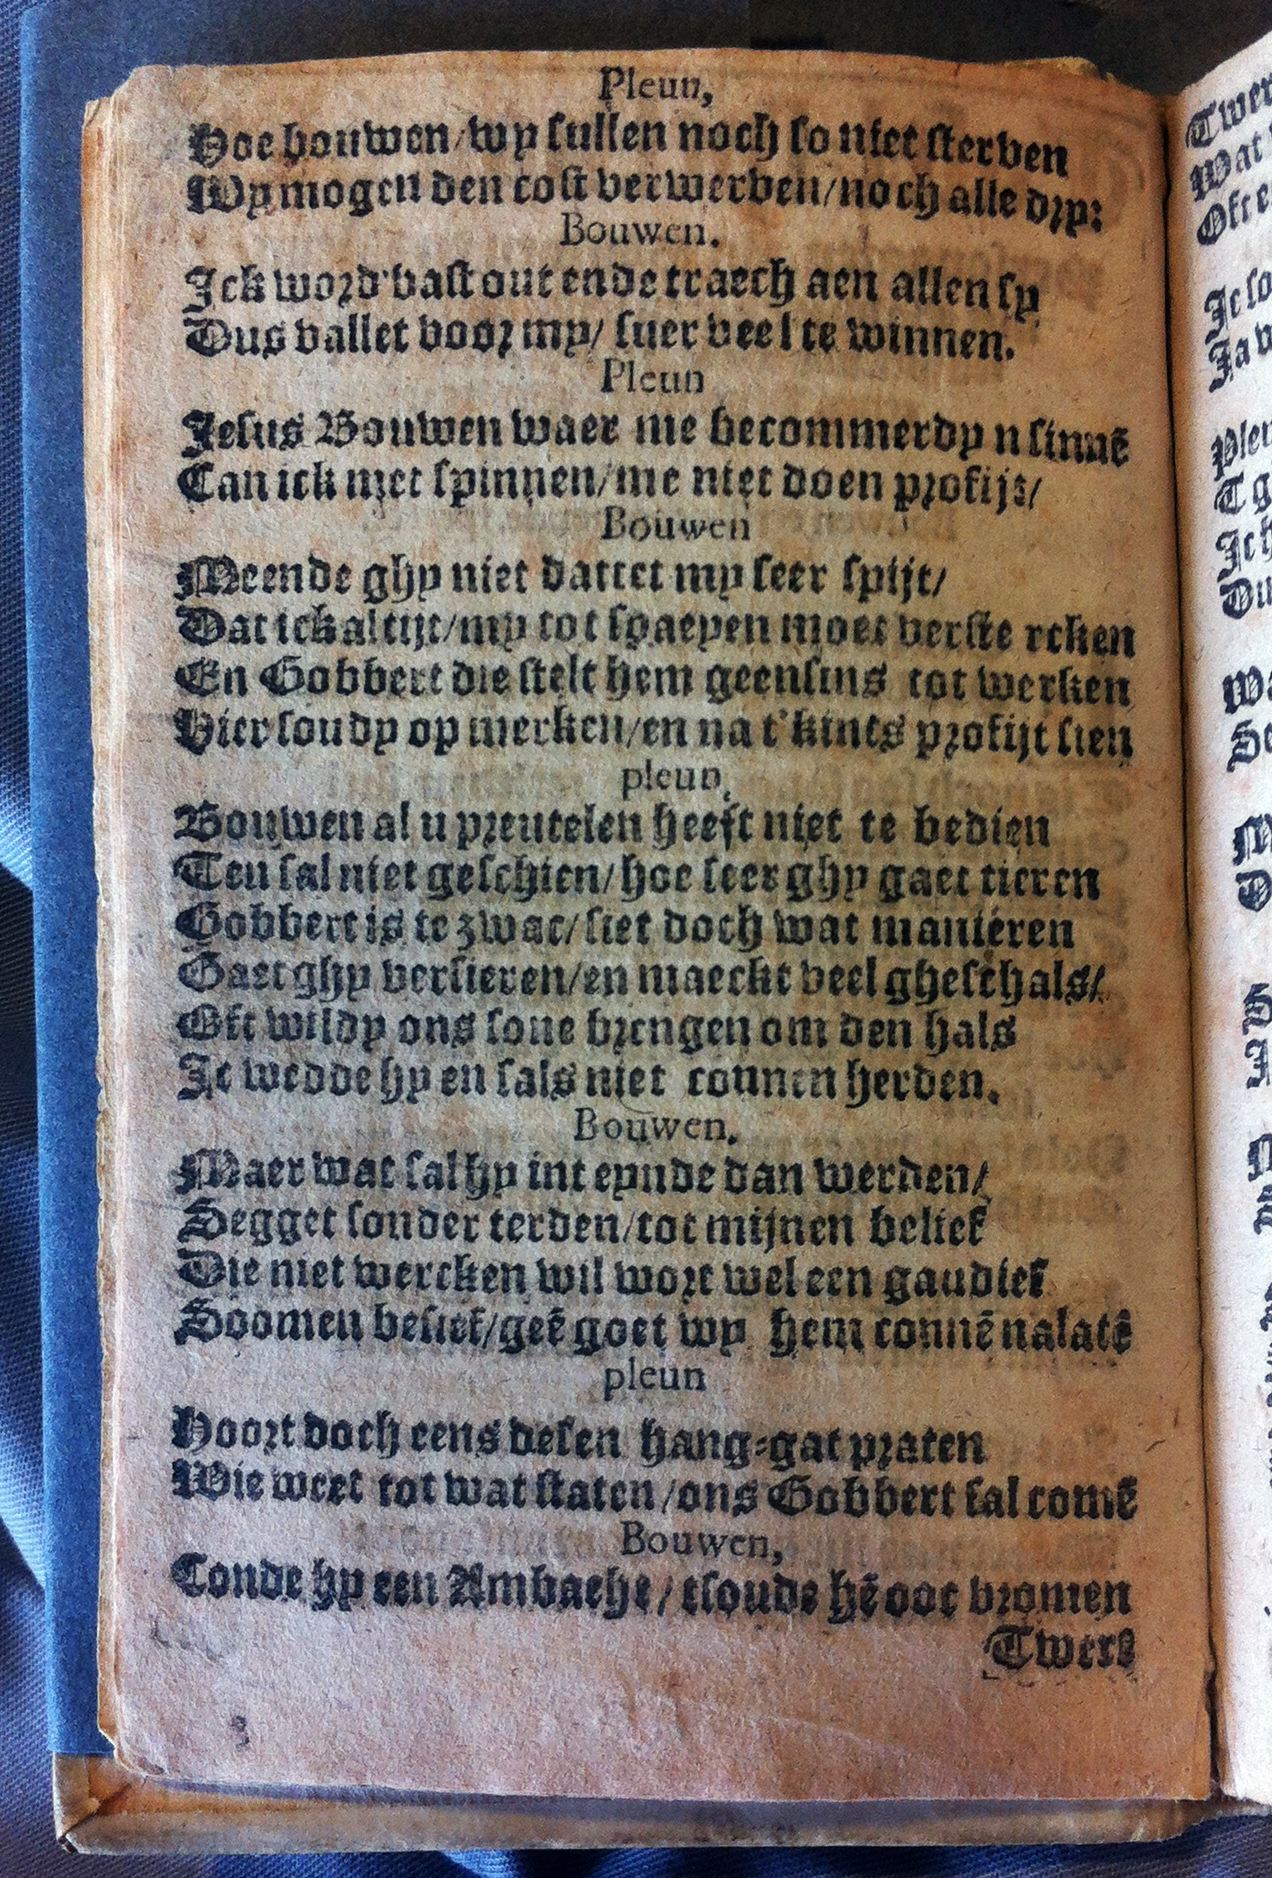 Pleun,
Hoe bouwen/wy sullen noch so niet sterven
Wy mogen den cost verwerven/noch alle dry:
Bouwen.
Ick word' vast out ende traech aen allen sy
Dus vallet voor my/ suer veel te winnen.
Pleun
Jesus Bouwen waer me becommerdy u sinnē
Can ick niet spinnen/me niet doen profijt/
Bouwen
Meende ghy niet dattet my seer spijt/
Dat ick altijt/my tot schaepen moet verste rcken
En Gobbert die stelt hem geensins tot werken
Hier soudy op merken/en na t'kints profijt sien
pleun.
Bouwen al u preutelen heeft niet te bedien
Ten sal niet geschien/hoe seer ghy gaet tieren
Gobbert is te zwac/siet doch wat manieren
Gaet ghy versieren/en maeckt veel gheschals/
Oft wildy ons sone brengen om den hals
Ic wedde hy en sals niet connen herden.
Bouwen.
Maer wat sal hy int eynde dan werden/
Segget sonder terden/tot mijnen belief
Die niet wercken wil wort wel een gaudief
Soomen besief/geē goet wy hem connē nalatē
pleun
Hoort doch eens desen hang-gat praten
Wie weet tot wat staten/ons Gobbert sal comē
Bouwen,
Conde hy een Ambacht/tsoude hē ooc vromen
Twers
Twer
Wat
Oft e
Ic so
Ja v
Pleu
T g
Ich
Du
Wa